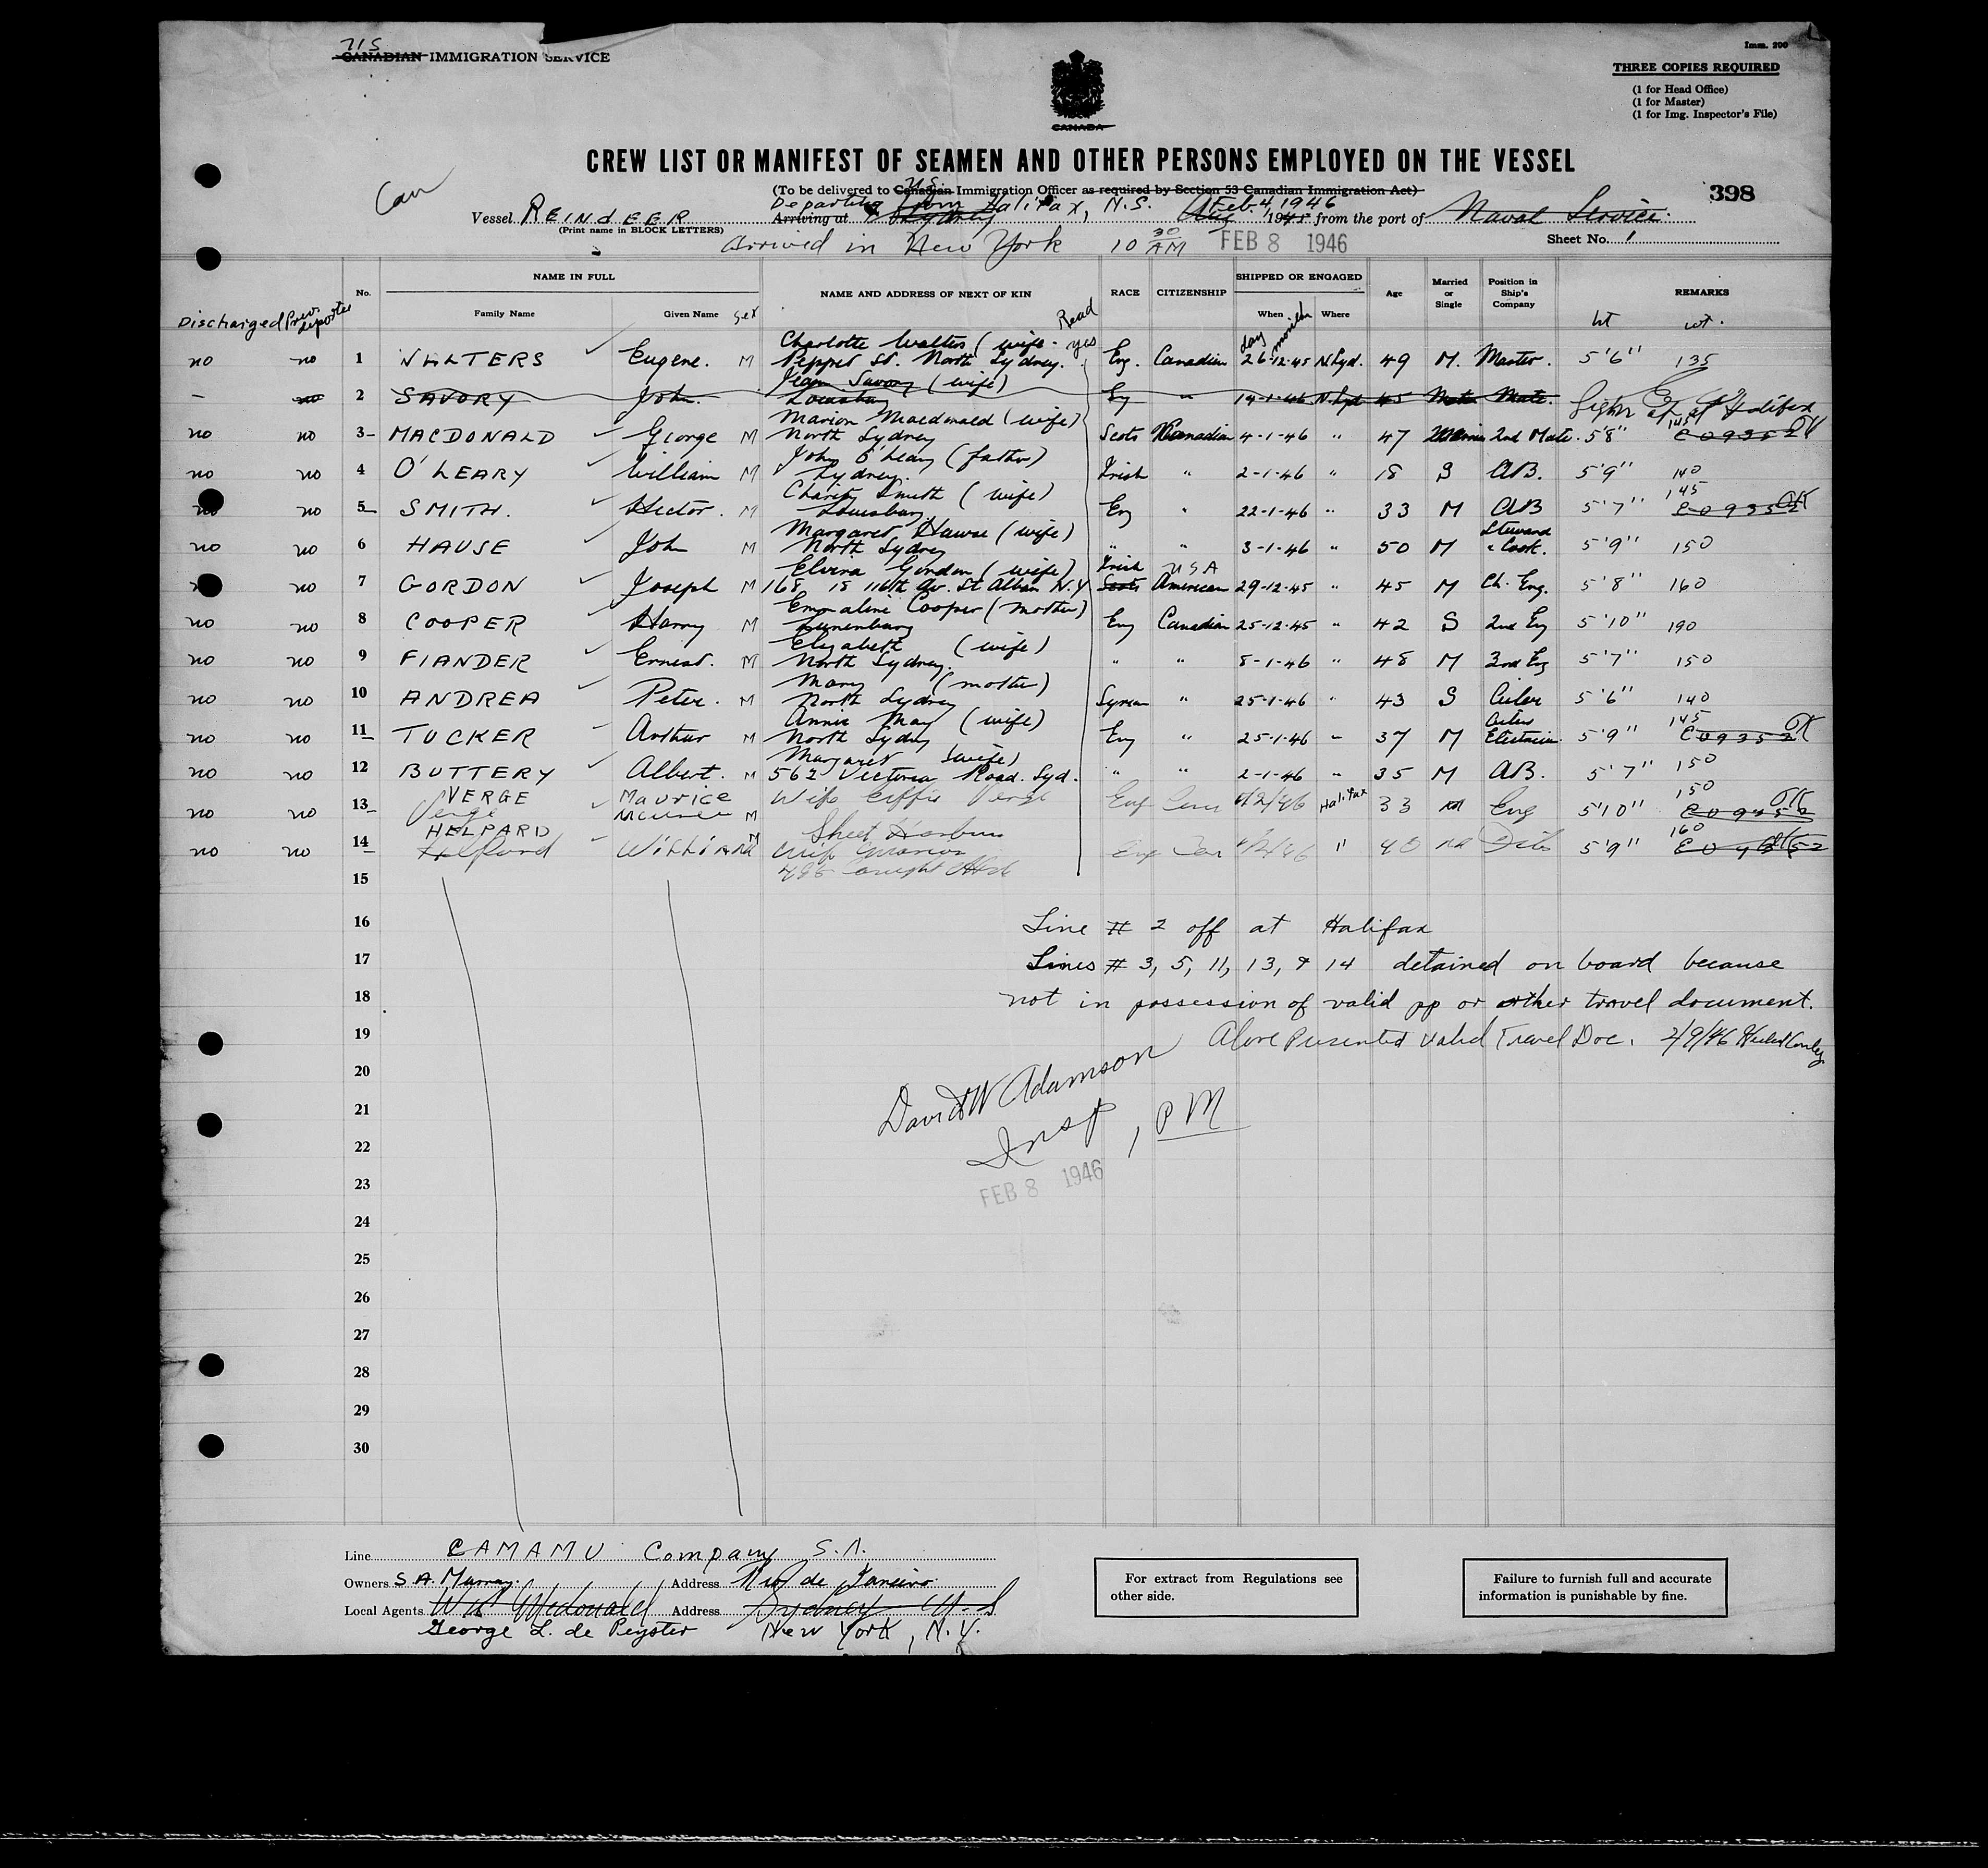 U.S.
CANADIAN IMMIGRATION SERVICE
Imm. 200
THREE COPIES REQUIRED
(1 for Head Office)
(1 for Master)
(1 for Img. Inspector's File)
CANADA
CREW LIST OR MANIFEST OF SEAMEN AND OTHER PERSONS EMPLOYED ON THE VESSEL
(To be delivered to Canadian U.S. Immigration Officer as required by Section 53 Canadian Immigration Act)
398
Can
Departing from Halifax, N.S. Feb. 4, 1946
Vessel REINdEER Arriving at Sydney Aug 194 from the port of Naval Service
(Print name in BLOCK LETTERS)
Arrived in New York 10 30 AM FEB 8 1946 Sheet No. 1
Discharged Prev. deported No. NAME IN FULL NAME AND ADDRESS OF NEXT OF KIN Read RACE CITIZENSHIP SHIPPED OR ENGAGED Age Married or Single Position in Ship's Company REMARKS
Family Name Given Name Sex When day month Where ht wt.
Charlotte Walters (wife - yes
no no 1 WALTERS Eugene. M Pepper St. North Sydney. Eng. Canadian 26-12-45 N.Syd. 49 M. Master. 5'6" 135
Jean Savory (wife)
- no 2 SAVORY John. Louisburg Eng " 14-1-46 N.Syd 45 Mate. off at Halifax
Marion Macdonald (wife)
no no 3 MACDONALD George M North Sydney Scots Canadian 4-1-46 " 47 2nd Mate. 5'8" 145 C09352 OK
John O'Leary (father)
no no 4 O'LEARY William M Sydney. Irish " 2-1-46 " 18 S AB. 5'9" 140
Charity Smith (wife)
no no 5 SMITH. Hector. M Louisburg Eng " 22-1-46 " 33 M AB 5'7" 145 C09352 OK
Margaret Hawse (wife) Steward
no no 6 HAUSE John M North Sydney " " 3-1-46 " 50 M & Cook. 5'9" 150
Elvira Gordon (wife) Irish USA
no no 7 GORDON Joseph M 168 18 116th Av. St Alban N.Y. Scots American 29-12-45 " 45 M Ch. Eng. 5'8" 160
Emmaline Cooper (mother)
no no 8 COOPER Harry M Lunenburg Eng Canadian 25-12-45 " 42 S 2nd Eng 5'10" 190
Elizabeth (wife)
no no 9 FIANDER Ernest. M North Sydney. " " 8-1-46 " 48 M 3rd Eng 5'7" 150
Mary (mother)
no no 10 ANDREA Peter. M North Sydney Syrian " 25-1-46 " 43 S Oiler 5'6" 140
Annie May (wife) Oiler
no no 11 TUCKER Arthur M North Sydney Eng " 25-1-46 " 37 M Electrician 5'9" 145 C09352 OK
Margaret (wife)
no no 12 BUTTERY Albert. M 562 Victoria Road. Syd. " " 2-1-46 " 35 M AB. 5'7" 150
VERGE Maurice Wife Effie Verge
no no 13 Verge Maurice M Sheet Harbour Eng Can 4/2/46 Halifax 33 M Eng 5'10" 150 C09352 OK
HELPARD
no no 14 Helpard William M Wife Eng Can 4/2/46 " 40 M 5'9" 160 C09352 OK
15
16 Line # 2 off at Halifax
17 Lines # 3, 5, 11, 13, & 14 detained on board because
18 not in possession of valid pp or other travel document.
19 Above Presented Valid Travel Doc. 2/9/46
20
David W Adamson
21
Insp, PM
22
FEB 8 1946
23
24
25
26
27
28
29
30
Line CAMAMU Company S.A.
Owners S.A. Murray. Address Rio de Janeiro
Local Agents Mcdonald Address Sydney N.S
George L. de Peyster New York, N.Y.
For extract from Regulations see other side.
Failure to furnish full and accurate information is punishable by fine.